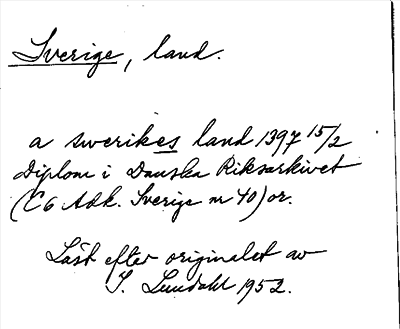 Sverige, land.
a swerikes land 1397 15/2
Diplom i Danska Riksarkivet
(C6 Adk. Sverige nr 40) or.
Läst efter originalet av
I. Lundahl 1952.